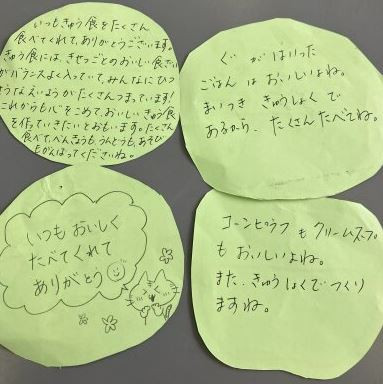 いつもきゅう食をたくさん
食べてくれて、ありがとうございます。
きゅう食には、きせつごとのおいしい食ざい
がバランスよく入っていて、みんなにひつ
ようなえいようがたくさんつまっています!
これからも心をこめて、おいしいきゅう食
を作っていきたいとおもいます。たくさん
食べて、べんきょうも、うんどうも、あそび
もがんばってくださいね。
ぐがはいった
ごはんはおいしいよね。
まいつききゅうしょくで
あるから、たくさんたべてね。
いつもおいしく
たべてくれて
ありがとう
コーンピラフもクリームスープ
もおいしいよね。
また、きゅうしょくでつくり
ますね。